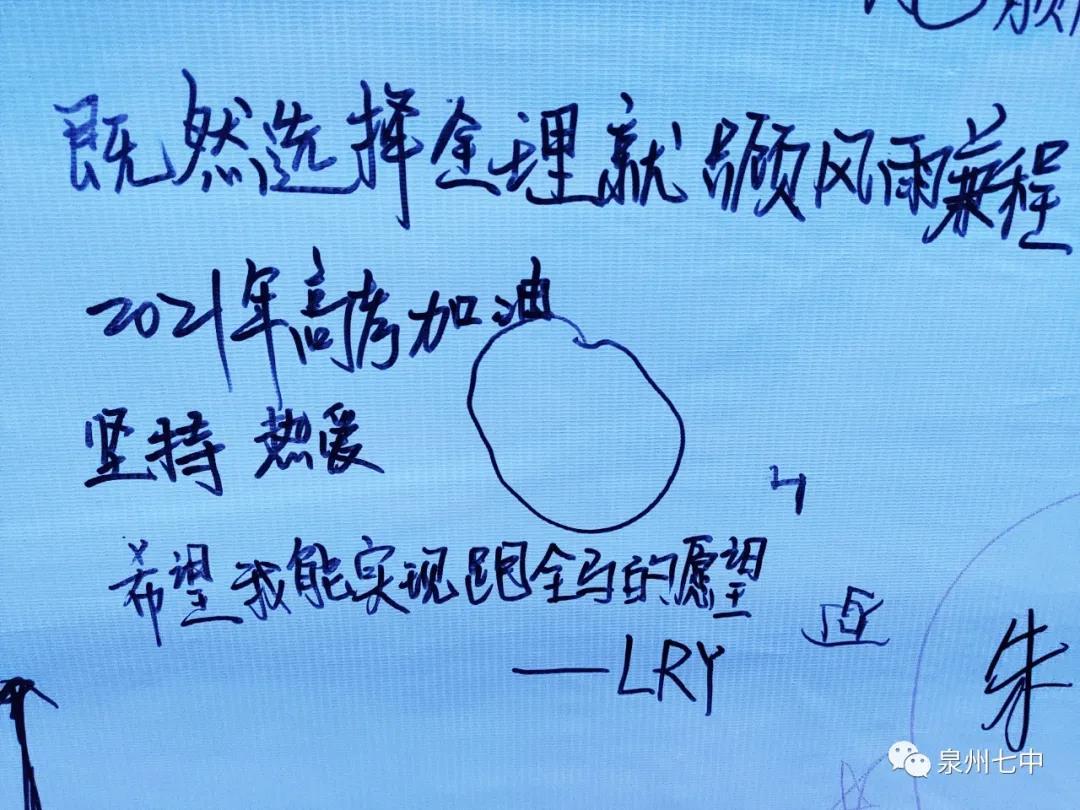 既然选择全理就顾风雨兼程
2021年高考加油
坚持 热爱
希望我能实现跑全马的愿望
——LRY
朱
泉州七中